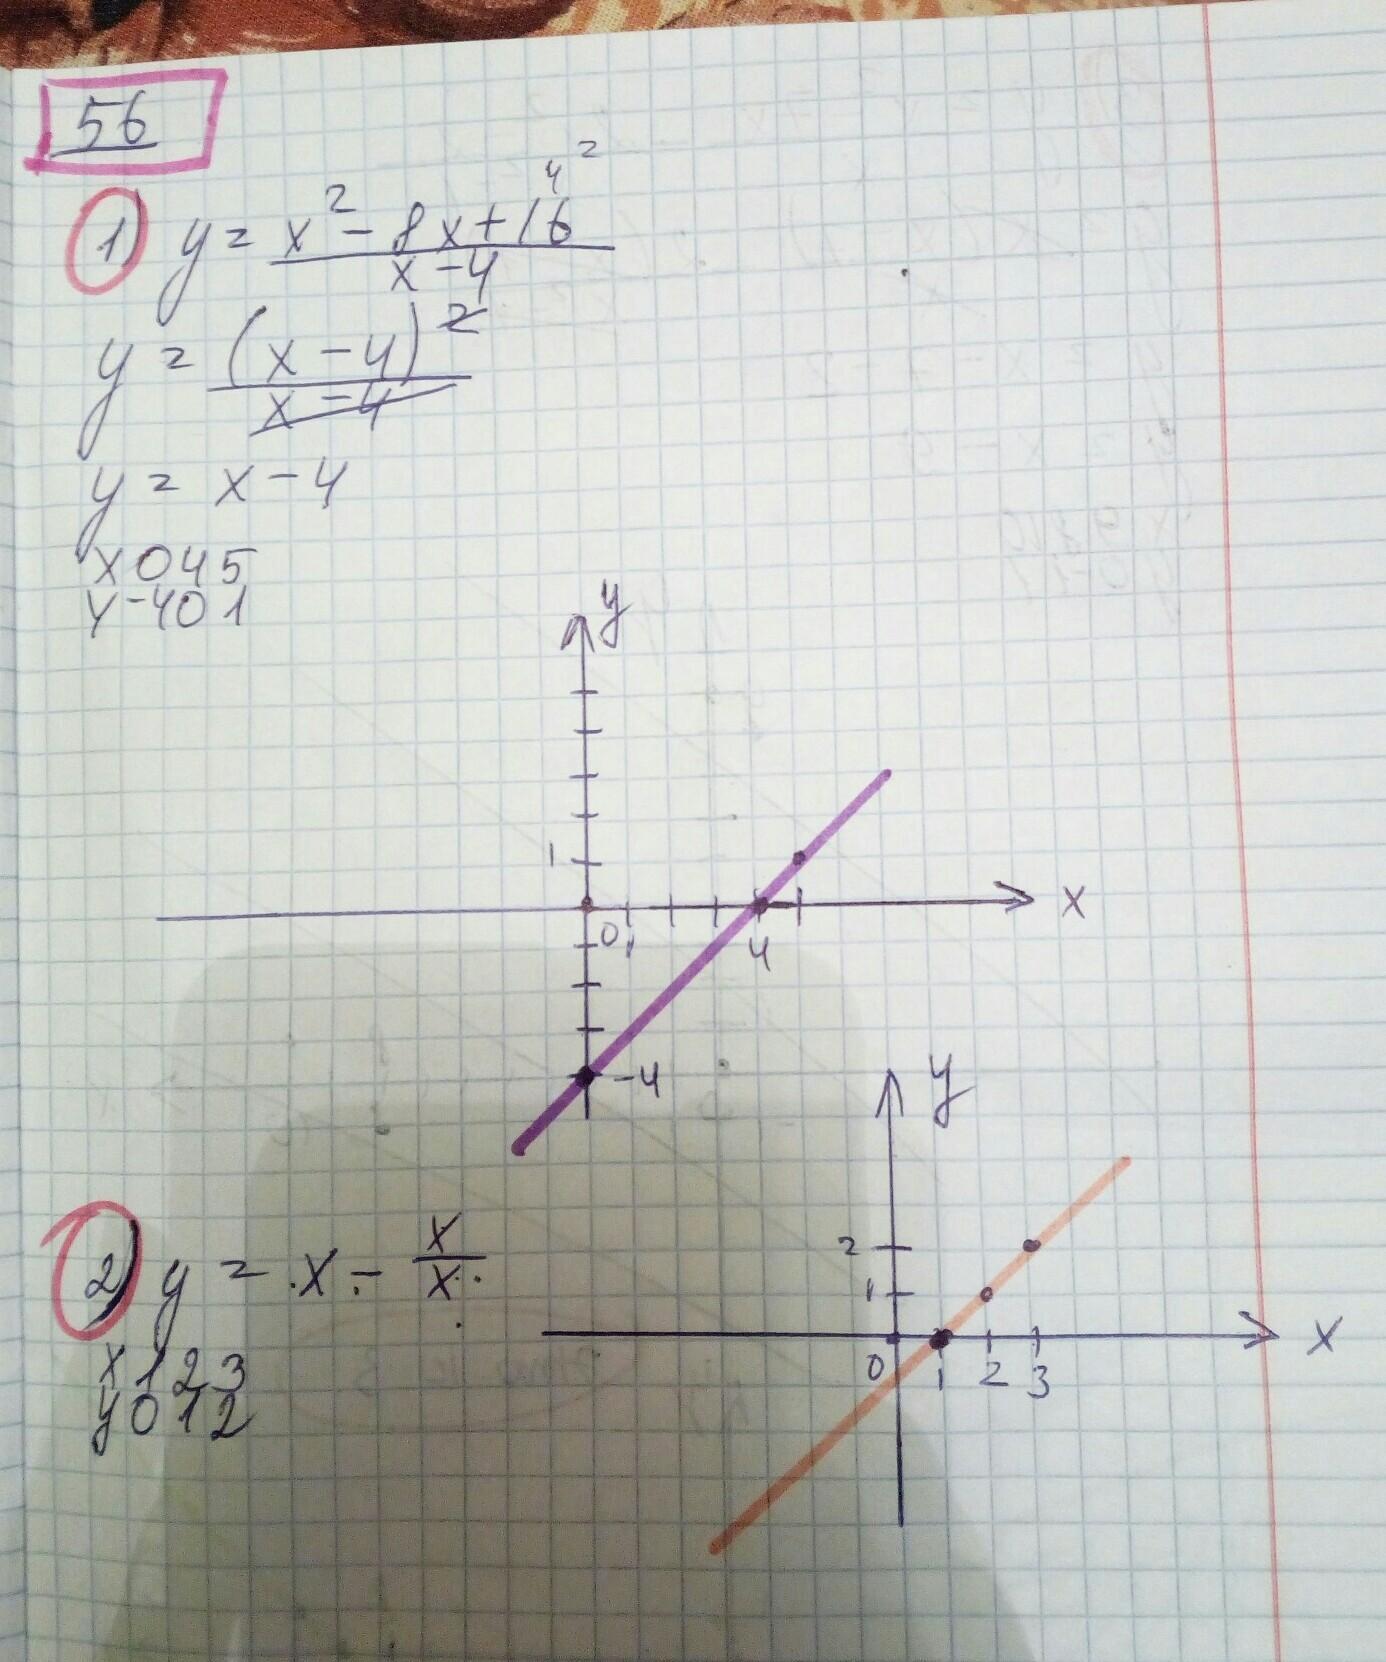 56
1) y = x² - 8x + 16 4²
x - 4
y = (x - 4)²
x - 4
y = x - 4
x 0 4 5
y -4 0 1
y
1
0 1 4 x
-4
y
2) y = x - x
x
2
1
0 1 2 3 x
x 1 2 3
y 0 1 2